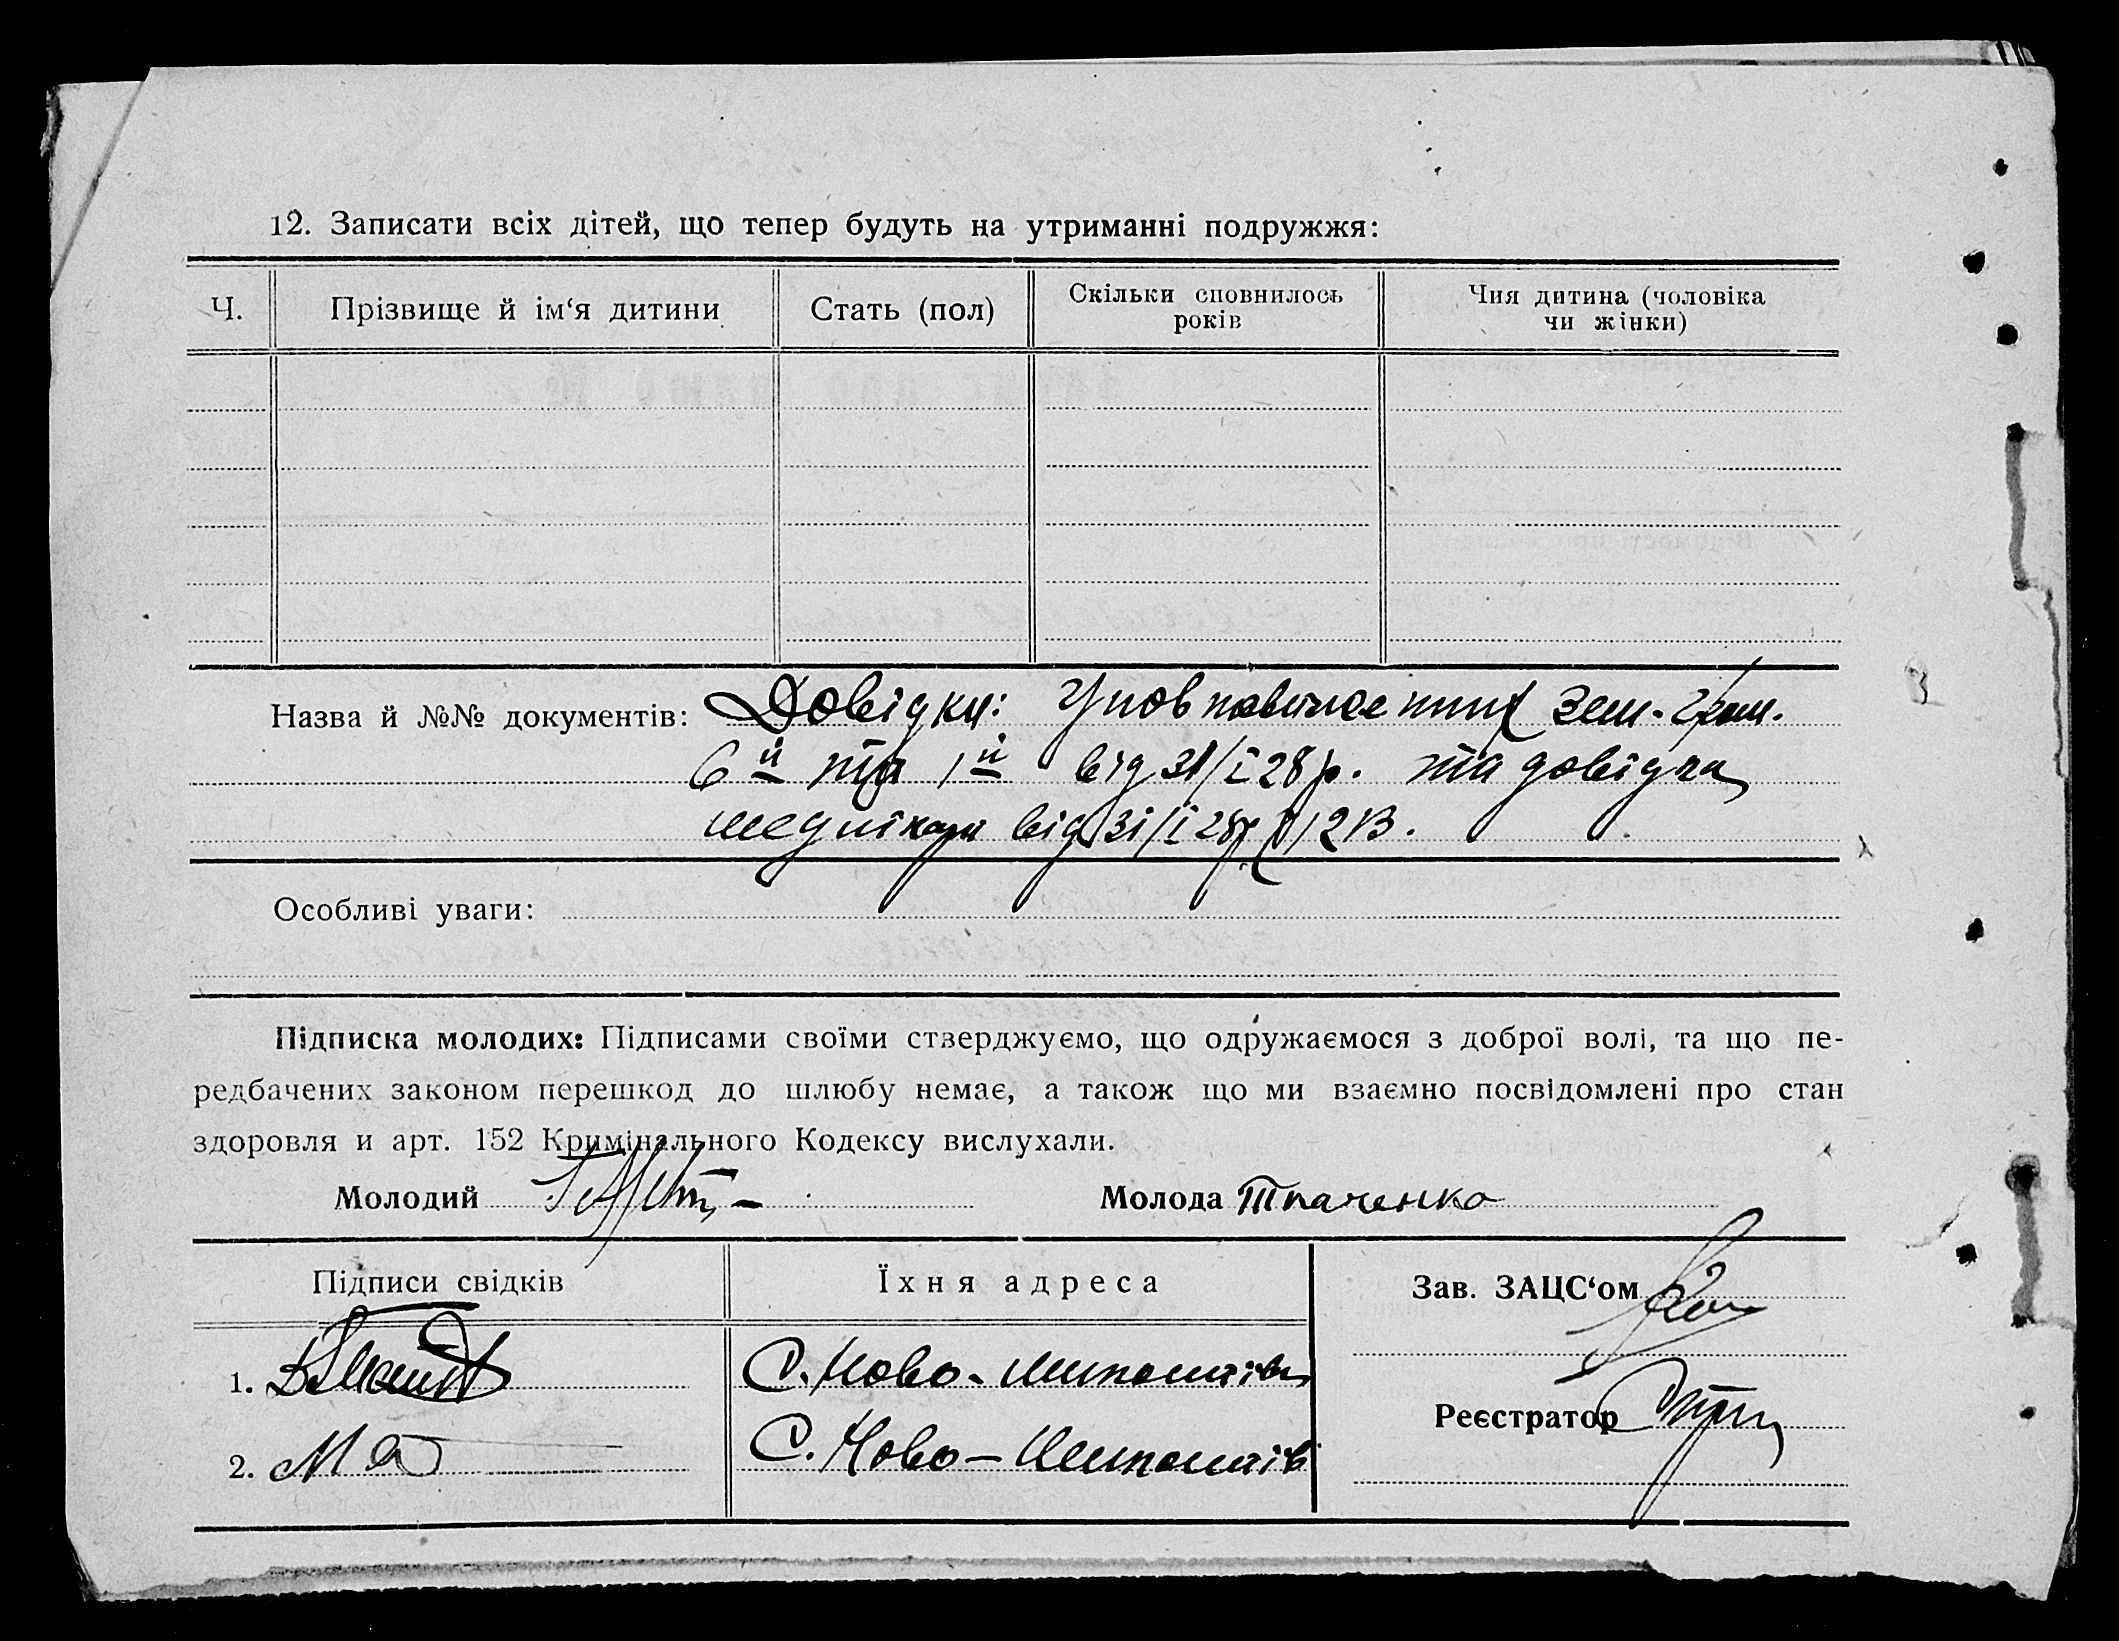 12. Записати всіх дітей, що тепер будуть на утриманні подружжя:
Ч. Прізвище й ім‘я дитини Стать (пол) Скільки сповнилось років Чия дитина (чоловіка чи жінки)
Назва й №№ документів: Довідки: Уповноважених зем. гром.
6й та 1й від 31/І 28 р. та довідка
від 31/І 28р
Особливі уваги:
Підписка молодих: Підписами своїми стверджуємо, що одружаємося з доброї волі, та що пе-
редбачених законом перешкод до шлюбу немає, а також що ми взаємно посвідомлені про стан
здоровля и арт. 152 Кримінального Кодексу вислухали.
Молодий Молода Ткаченко
Підписи свідків Їхня адреса Зав. ЗАЦС‘ом
1. С. Ново-
Реєстратор
2. С. Ново-